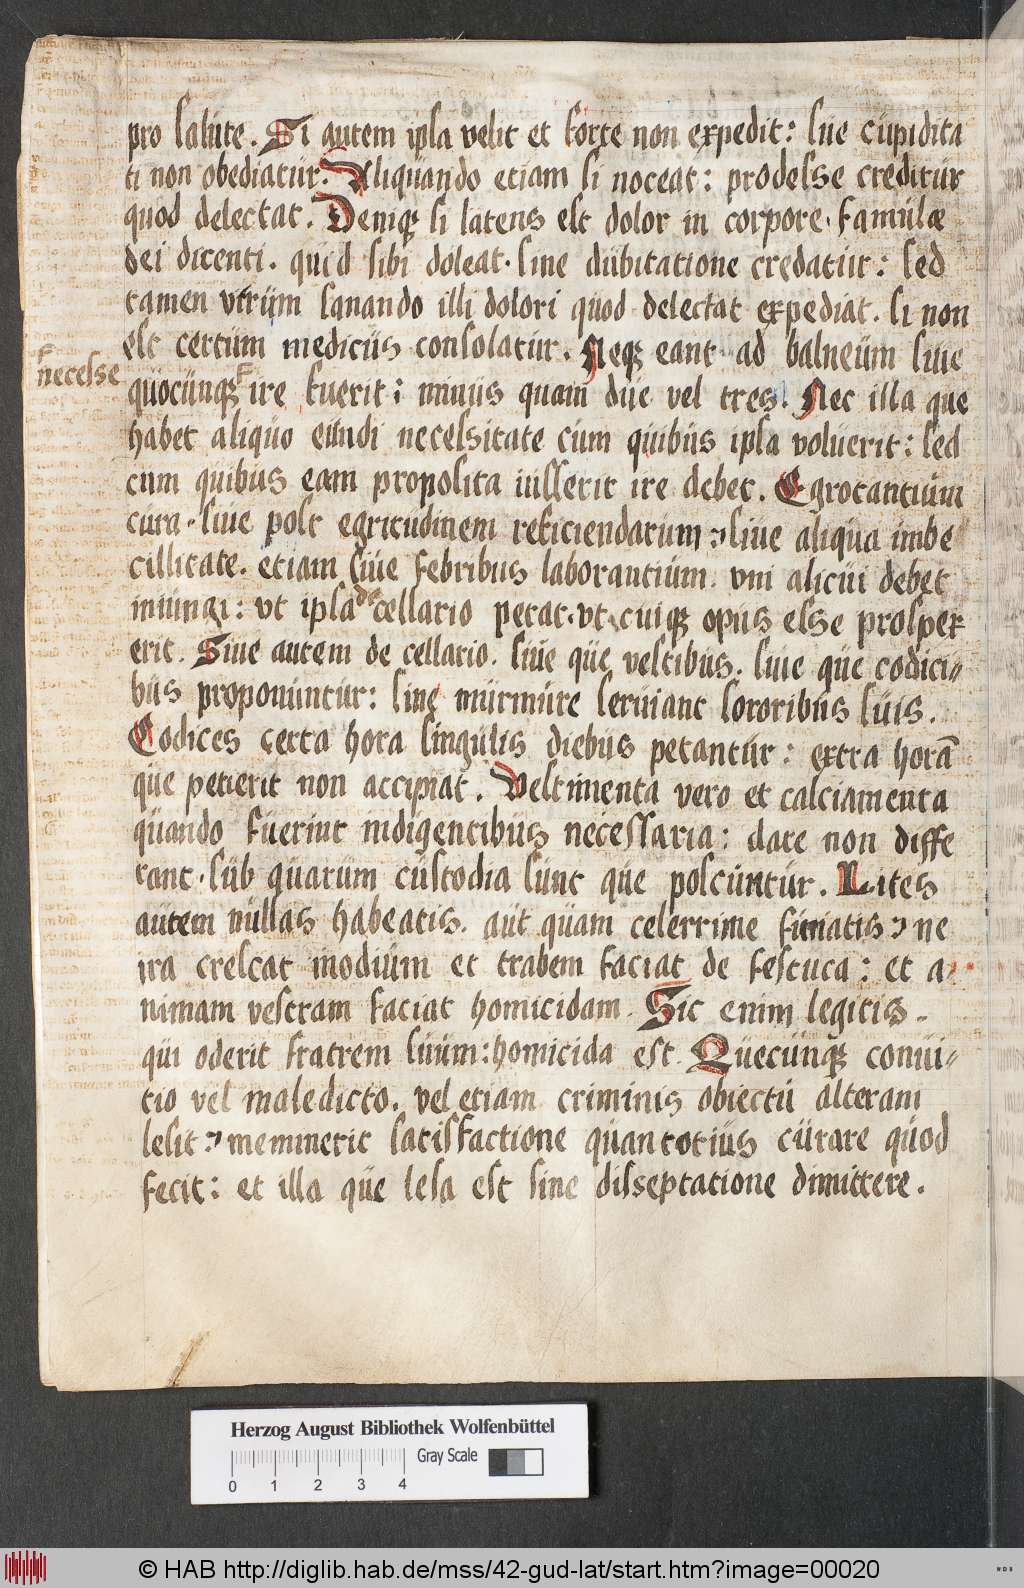 pro salute. Si autem ipsa velit et forte non expedit: sue cupidita
ti non obediatur. Aliquando etiam si noceat: prodesse creditur
quod delectat. Deniqꝫ si latens est dolor in corpore. famulæ
dei dicenti. quid sibi doleat. sine dubitatione credatur: sed
tamen vtrum sanando illi dolori quod delectat expediat. si non
est certum medicus consolatur. Neqꝫ eant ad balneum siue
necesse
quocunqꝫ ire fuerit: minus quam due vel tres. Nec illa que
habet aliquo eundi necessitate cum quibus ipsa voluerit: sed
cum quibus eam proposita iusserit ire debet. Egrotantium
cura. siue post egritudinem reficiendarum, siue aliqua imbe
cillitate. etiam siue febribus laborantium. vni alicui debet
iniungi: vt ipsa de cellario petat. vt cuiqꝫ opus esse prosper
erit. Siue autem de cellario. siue que vestibus. siue que codici-
bus proponuntur: sine murmure seruiant sororibus suis.
Codices certa hora singulis diebus petantur: extra horā
que petierit non accipiat. Vestimenta vero et calciamenta
quando fuerint indigentibus necessaria: dare non diffe
rant. sub quarum custodia sunt que poscuntur. Lites
autem nullas habeatis. aut quam celerrime finiatis, ne
ira crescat in odium et trabem faciat de festuca: et a-
nimam vestram faciat homicidam. Sic enim legitis.
qui oderit fratrem suum: homicida est. Quecunqꝫ conui-
tio vel maledicto. vel etiam criminis obiectu alteram
lesit, meminerit satisfactione quantotius curare quod
fecit: et illa que lesa est sine disseptatione dimittere.
Herzog August Bibliothek Wolfenbüttel
Gray Scale
0 1 2 3 4
© HAB http://diglib.hab.de/mss/42-gud-lat/start.htm?image=00020